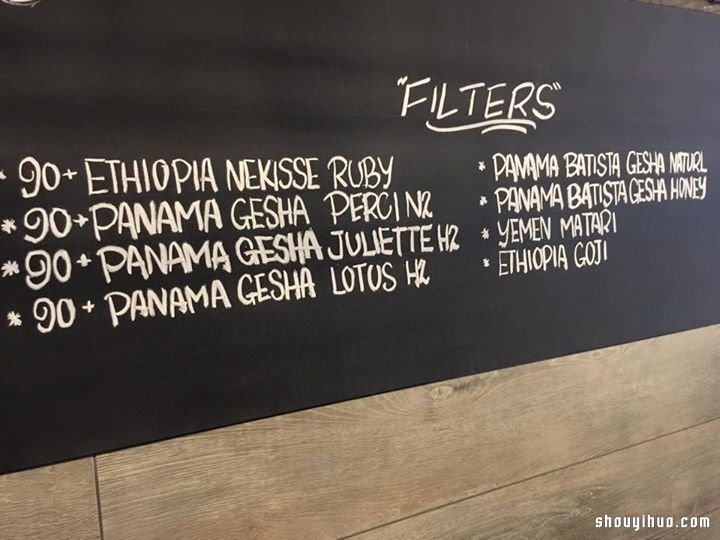 "FILTERS"
* 90+ ETHIOPIA NEKISSE RUBY
* 90+ PANAMA GESHA PERCI N2
* 90+ PANAMA GESHA JULIETTE H2
* 90+ PANAMA GESHA LOTUS H2
* PANAMA BATISTA GESHA NATURL
* PANAMA BATISTA GESHA HONEY
* YEMEN MATARI
* ETHIOPIA GOJI
shouyihuo.com